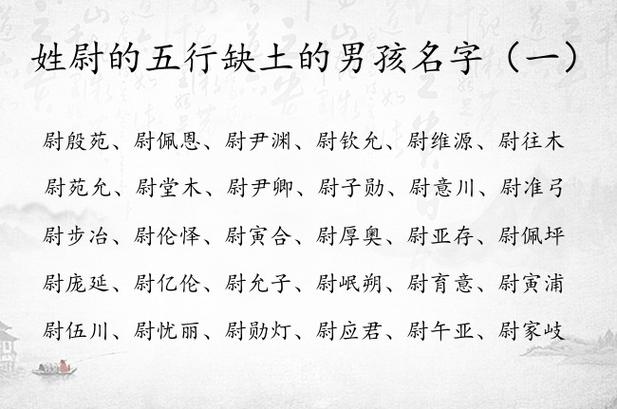 姓尉的五行缺土的男孩名字（一）
尉殷苑、尉佩恩、尉尹渊、尉钦允、尉维源、尉往木
尉苑允、尉堂木、尉尹卿、尉子勋、尉意川、尉准弓
尉步冶、尉伦怿、尉寅合、尉厚奥、尉亚存、尉佩坪
尉庞延、尉亿伦、尉允子、尉岷朔、尉育意、尉寅浦
尉伍川、尉忧丽、尉勋灯、尉应君、尉午亚、尉家岐